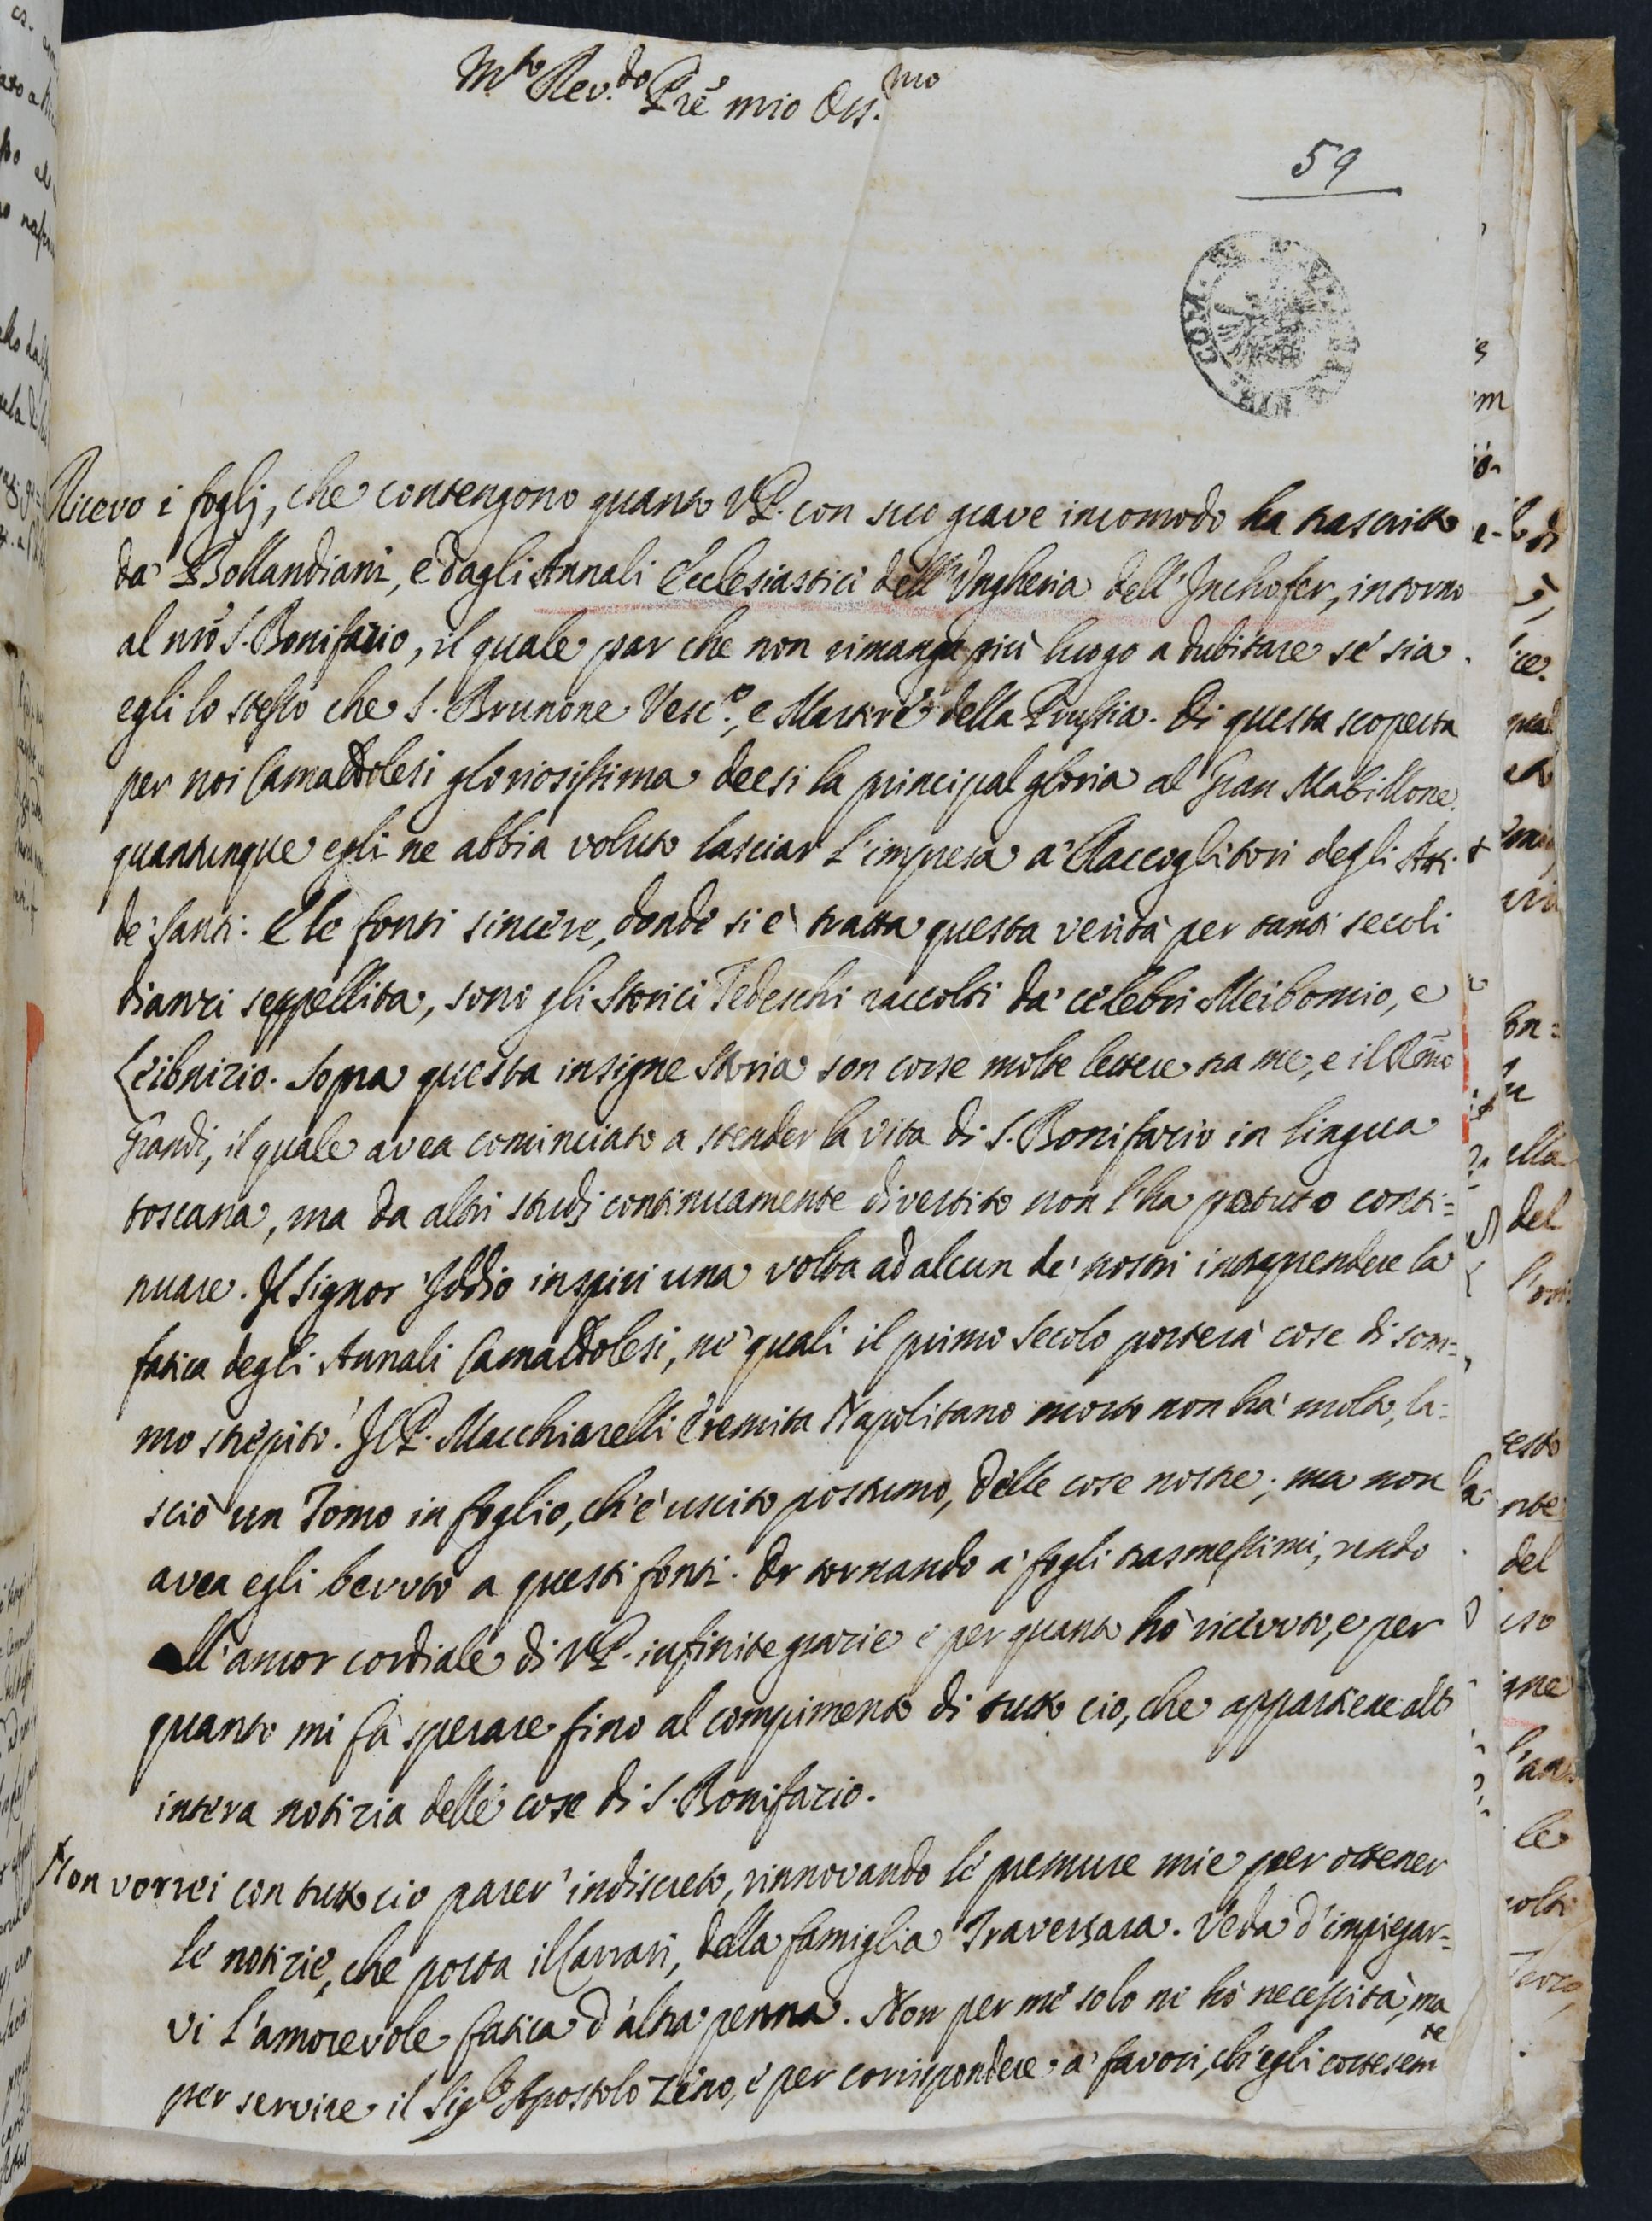 M.to Rev.do Pre mio Oss.mo
59
Ricevo i foglj, che contengono quanto V.P. con suo grave incomodo ha trascritto
da' Bollandiani, e dagli Annali Ecclesiastici dell'Ungheria dell'Inchofer, intorno
al nrõ S. Bonifazio, il quale par che non rimanga più luogo a dubitare se sia
egli lo stesso che S. Brunone Vesc.o, e Martire della Prussia. Di questa scoperta
per noi Camaldolesi gloriosissima deesi la principal gloria al Gran Mabillone,
quantunque egli ne abbia voluto lasciar l'impresa a' Raccoglitori degli Atti
de' Santi. E le fonti sincere, donde si è tratta questa verità per tanti secoli
dianzi seppellita, sono gli Storici Tedeschi raccolti da' celebri Meibomio, e
Leibnizio. Sopra questa insigne Storia son corse molte lettere tra me, e il Rmõ
Grandi, il quale avea cominciato a stender la vita di S. Bonifazio in lingua
toscana, ma da altri studj continuamente divertito non l'ha potuto conti=
nuare. Il Signor Iddio inspiri una volta ad alcun de' nostri intraprendere la
fatica degli Annali Camaldolesi, ne' quali il primo Secolo porterà cose di som=
mo strepito! Il P. Macchiarelli Eremita Napolitano morto non ha molto, la=
sciò un Tomo in foglio, ch'è uscito postumo, delle cose nostre; ma non
avea egli bevuto a questi fonti. Or tornando a' fogli trasmessimi, rendo
all'amor cordiale di V.P. infinite grazie e per quanto hò ricevuto, e per
quanto mi fà sperare fino al compimento di tutto cio, che appartiene all'
intera notizia delle cose di S. Bonifazio.
Non vorrei con tutto cio parer' indiscreto, rinnovando le premure mie per ottener
le notizie, che porta il Carrari, della famiglia Traversara. Veda d'impiegar=
vi l'amorevole fatica d'altra penna. Non per me solo ne hò necessità, ma
per servire il Sig.r Apostolo Zeno, e per corrispondere a' favori, ch'egli cortesemte